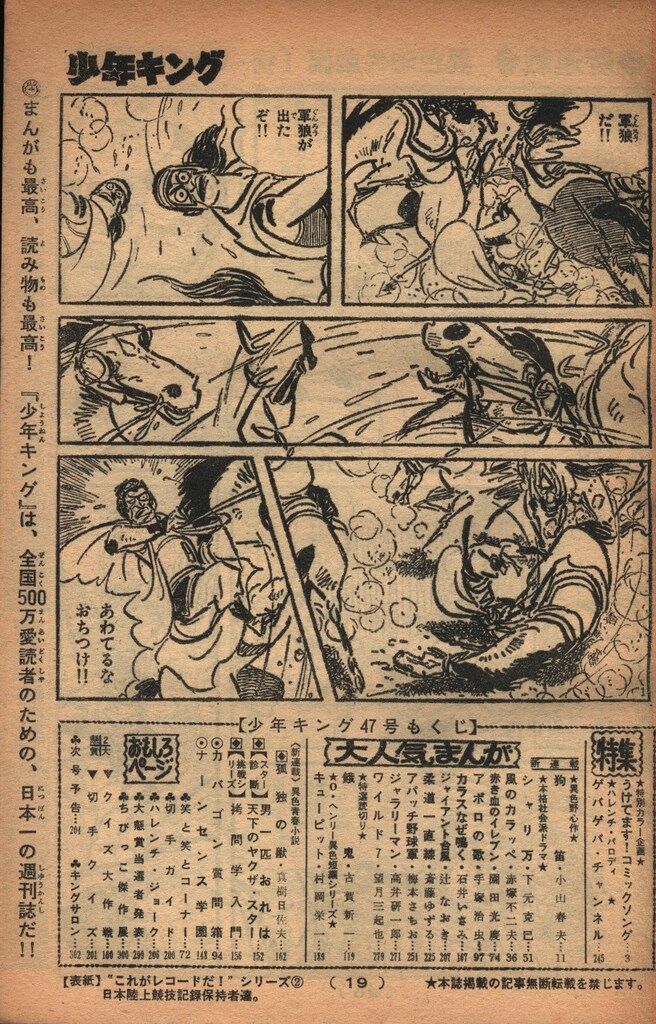 少年キング
軍狼だ!!
軍狼が出たぞ!!
あわてるな
おちつけ!!
㊎まんがも最高、読み物も最高!『少年キング』は、全国500万愛読者のための、日本一の週刊誌だ!!
【少年キング47号もくじ】
特集
★特別カラー企画★
うけてます!コミックソング 3
★ハレンチ・パロディ★
ゲバゲバ・チャンネル 245
大人気まんが
新連載
★異色野心作★
狗笛・小山春夫 11
★本格社会派ドラマ★
シャリ万・下元克巳 51
風のカラッペ・赤塚不二夫 36
赤き血のイレブン・園田光慶 74
アポロの歌・手塚治虫 97
カラスなぜ鳴く・石井いさみ 167
ジャイアント台風・辻なおき 207
柔道一直線・斎藤ゆずる 225
アパッチ野球軍・梅本さちお 251
ジャラリーマン・高井研一郎 271
ワイルド7・望月三起也 279
★特選読切り★
餓鬼・古賀新一 119
★O・ヘンリー異色短編シリーズ★
キューピット・村岡栄一 189
〈新連載〉異色青春小説
孤独の獣・真樹日佐夫 162
スター診断
男一匹おれは天下のヤクザ・スター 152
挑戦シリーズ
拷問学入門 156
◎カバゴン質問箱 94
◎ナーンセンス学園 148
おもしろページ
♣笑と笑とコーナー 72
♣切手ガイド 206
♣ハレンチ・ジョーク 200
♣大懸賞当選者発表 299
♣ちびっこ傑作展 300
2大懸賞
▼クイズ大作戦 160
▼切手クイズ 201
♣次号予告…204
♣キングサロン 302
【表紙】“これがレコードだ!”シリーズ②
日本陸上競技記録保持者達。
(19)
★本誌掲載の記事無断転載を禁じます。